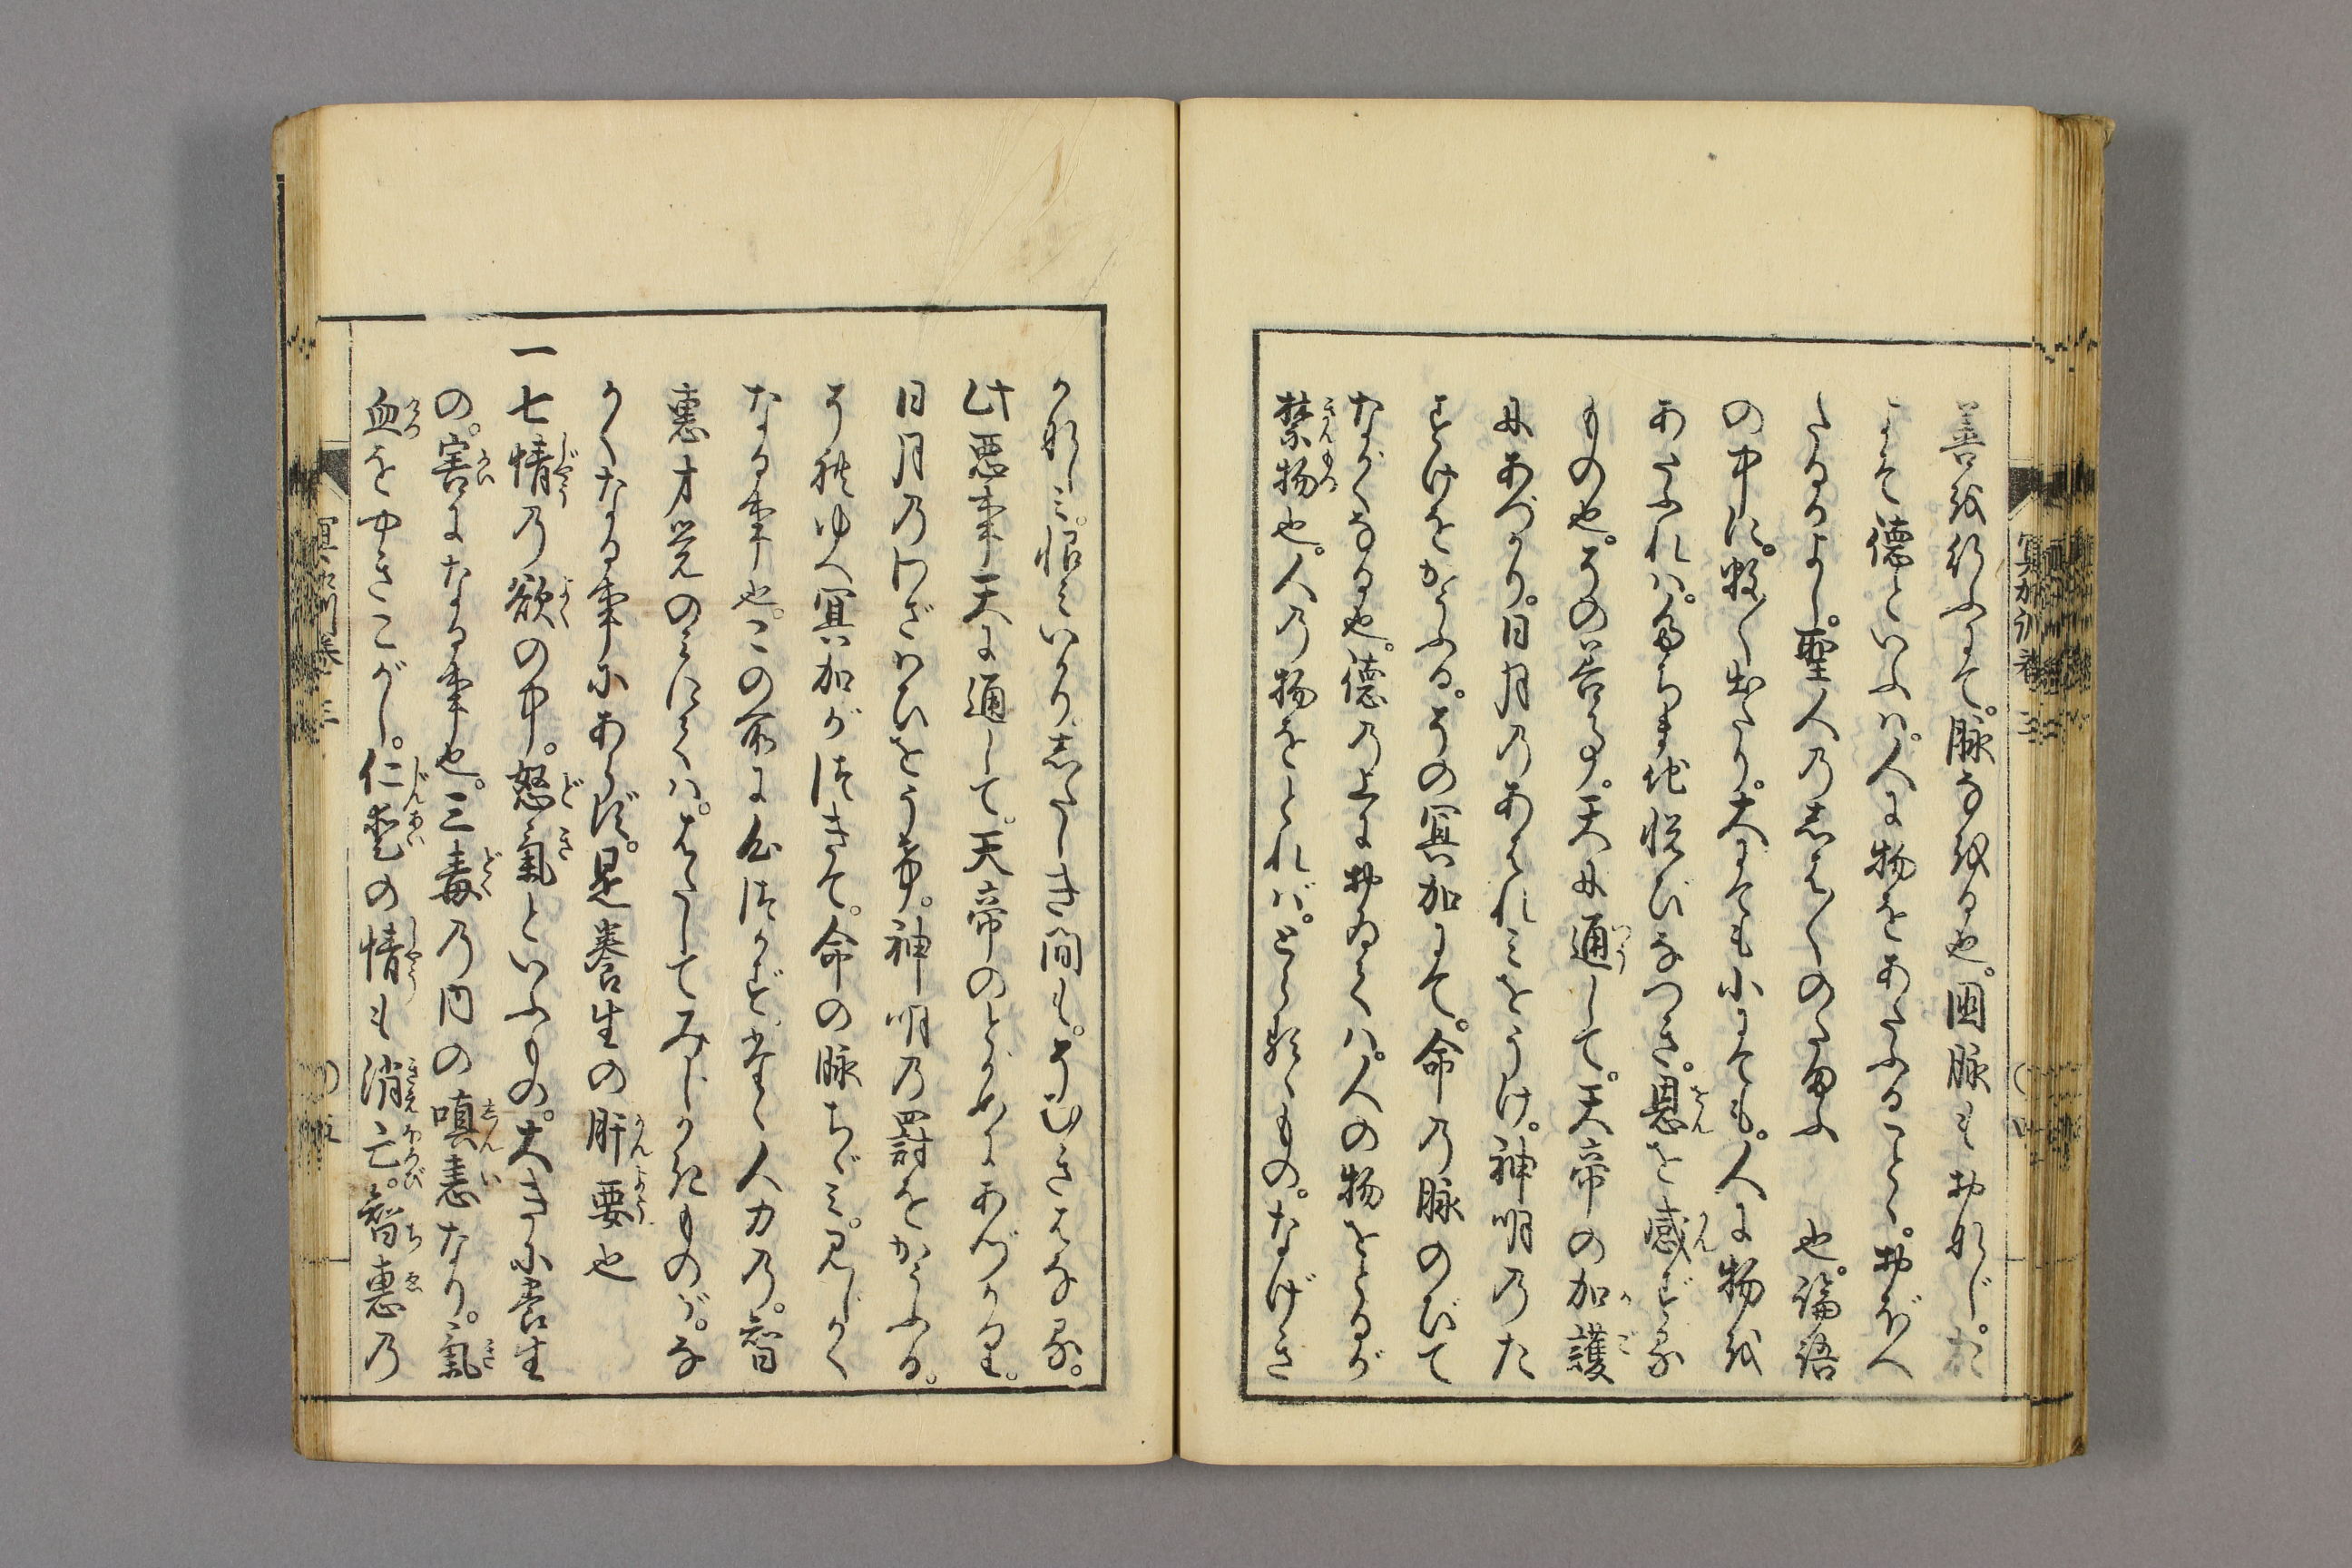 善を行ふにて。脉なをる也。国脉もおなじ。
よそ徳といふハ。人に物をあたふること。おぼへ
たるよし。聖人のしば〱のたまふ 也。論語
の中に。数〱出たり。大にても小にても。人に物を
あたふれハ。たちまち悦びなつき。恩を感ずる
もの也。その善事。天に通して。天帝の加護
にあづかり。日月のあはれみをうけ。神明のた
すけをかうふる。その冥加にて。命の脉のびて
ながくなる也。徳の上におゐてハ。人の物をとるが
禁物也。人の物をとれバ。とらるゝもの。なげき
かなしみ。恨みいかり。したしき間も。そむきはなる。
此悪事天に通して。天帝のとがめにあづかり。
日月のわざわひをうけ。神明の罸をかうふる。
それゆへ冥加がつきて。命の脉ちゞミ。みじかく
なる事也。この所に心つかず。たゞ人力の。智
恵才覚のミにてハ。はたしてみじかきものが。な
かくなる事にあらず。是養生の肝要也
一七情の欲の中。怒氣といふもの。大きに養生
の。害になる事也。三毒の内の嗔恚なり。氣
血をやきこがし。仁愛の情も消亡。智恵の